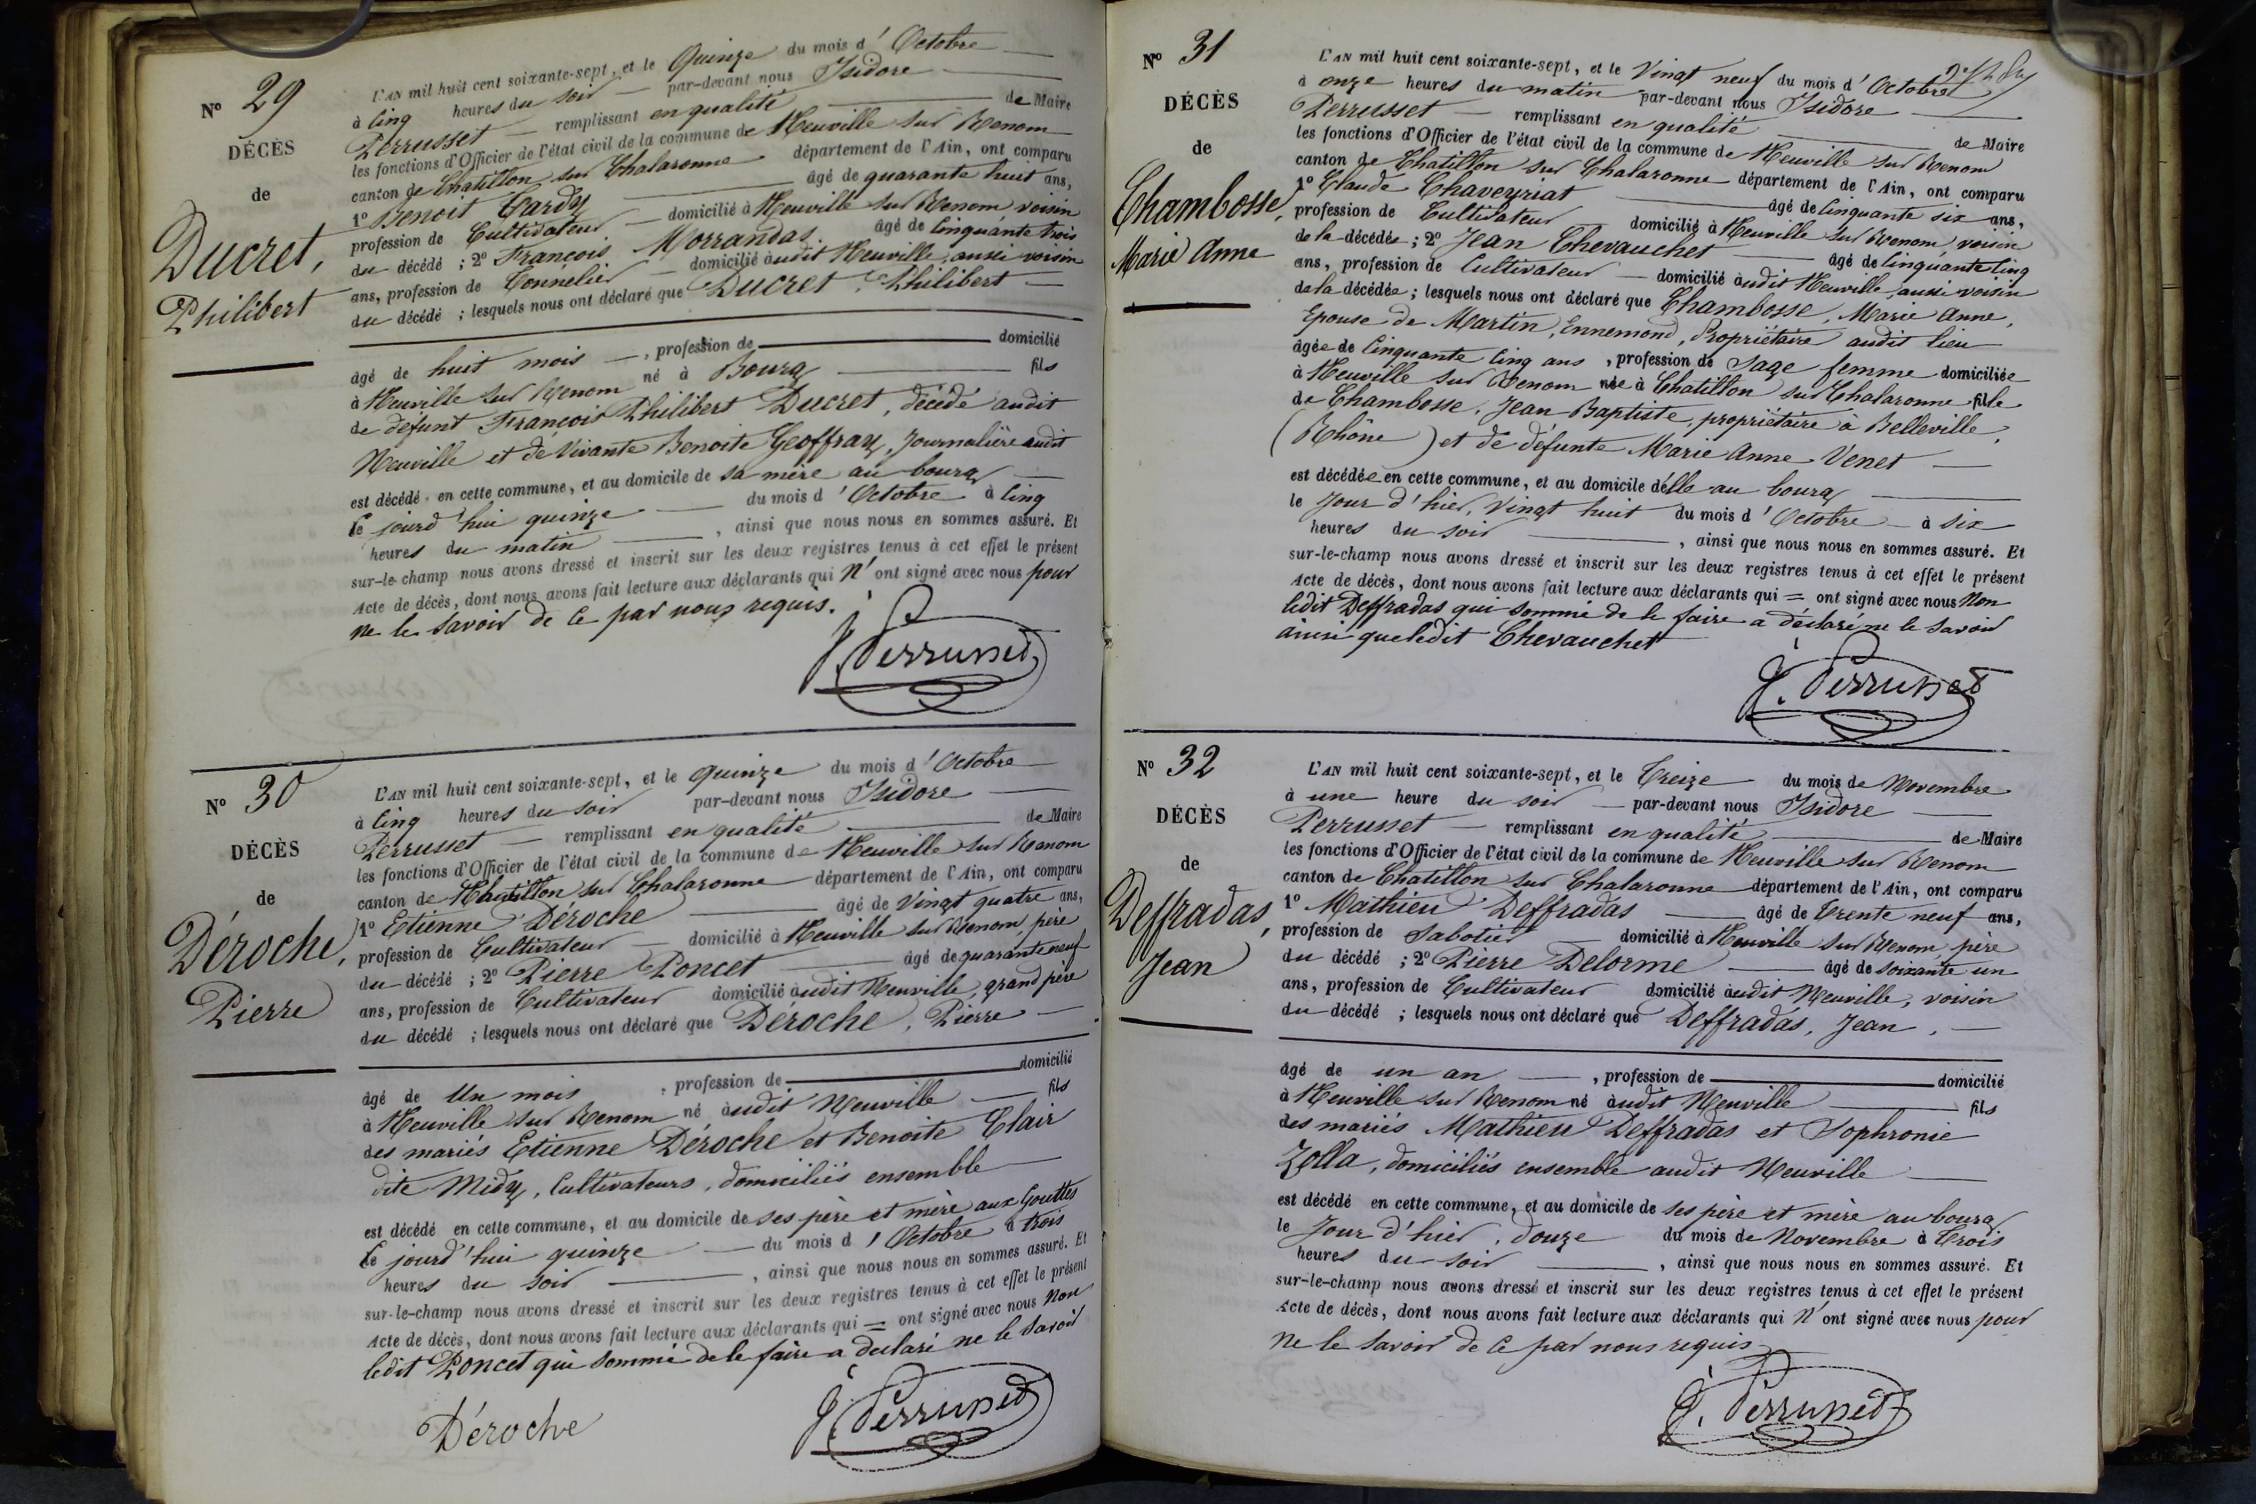 N° 29
DÉCÈS
de
Ducret,
Philibert
L'AN mil huit cent soixante-sept, et le Quinze du mois d' Octobre
à Cinq heures du soir par-devant nous Isidore
Perrusset remplissant en qualité de Maire
les fonctions d'Officier de l'état civil de la commune de Neuville sur Renom
canton de Chatillon sur Chalaronne département de l'Ain, ont comparu
1° Benoit Cardy âgé de quarante huit ans,
profession de Cultivateur domicilié à Neuville sur Renom voisin
du décédé ; 2° François Morrandas âgé de Cinquante trois
ans, profession de Tonnelier domicilié audit Neuville, aussi voisin
du décédé ; lesquels nous ont déclaré que Ducret, Philibert
âgé de huit mois , profession de domicilié
à Neuville sur Renom né à Bourg fils
de défunt François Philibert Ducret, décédé audit
Neuville et de Vivante Benoite Geoffray, Journalière audit
est décédé en cette commune, et au domicile de sa mère au bourg
le jourd'hui quinze du mois d 'Octobre à Cinq
heures du matin , ainsi que nous nous en sommes assuré. Et
sur-le-champ nous avons dressé et inscrit sur les deux registres tenus à cet effet le présent
Acte de décès, dont nous avons fait lecture aux déclarants qui n' ont signé avec nous pour
ne le savoir de ce par nous requis.
J. Perrusset
N° 30
DÉCÈS
de
Déroche,
Pierre
L'AN mil huit cent soixante-sept, et le quinze du mois d' Octobre
à Cinq heures du soir par-devant nous Isidore
Perrusset remplissant en qualité de Maire
les fonctions d'Officier de l'état civil de la commune de Neuville sur Renom
canton de Chatillon sur Chalaronne département de l'Ain, ont comparu
1° Etienne Déroche âgé de Vingt quatre ans,
profession de Cultivateur domicilié à Neuville sur Renom, père
du décédé ; 2° Pierre Poncet âgé de quarante neuf
ans, profession de Cultivateur domicilié audit Neuville, grand père
du décédé ; lesquels nous ont déclaré que Déroche, Pierre
âgé de Un mois , profession de domicilié
à Neuville sur Renom né audit Neuville fils
des mariés Etienne Déroche et Benoite Clair
dite Midy, Cultivateurs, domiciliés ensemble
est décédé en cette commune, et au domicile de ses père et mère aux Gouttes
le jourd'hui quinze du mois d 'Octobre à trois
heures du soir , ainsi que nous nous en sommes assuré. Et
sur-le-champ nous avons dressé et inscrit sur les deux registres tenus à cet effet le présent
Acte de décès, dont nous avons fait lecture aux déclarants qui = ont signé avec nous Non
ledit Poncet qui sommé de le faire a déclaré ne le savoir
Déroche J. Perrusset
N° 31
DÉCÈS
de
Chambosse,
Marie Anne
L'AN mil huit cent soixante-sept, et le Vingt neuf du mois d' Octobre
à onze heures du matin par-devant nous Isidore
Perrusset remplissant en qualité de Maire
les fonctions d'Officier de l'état civil de la commune de Neuville sur Renom
canton de Chatillon sur Chalaronne département de l'Ain, ont comparu
1° Claude Chaveyriat âgé de Cinquante six ans,
profession de Cultivateur domicilié à Neuville sur Renom voisin
de la décédée ; 2° Jean Chevauchet âgé de Cinquante Cinq
ans, profession de Cultivateur domicilié audit Neuville, aussi voisin
de la décédée ; lesquels nous ont déclaré que Chambosse, Marie Anne,
Epouse de Martin, Ennemond, Propriétaire audit lieu
âgée de Cinquante Cinq ans , profession de Sage femme domiciliée
à Neuville sur Renom née à Chatillon sur Chalaronne fille
de Chambosse, Jean Baptiste, propriétaire à Belleville,
(Rhône) et de défunte Marie Anne Venet
est décédée en cette commune, et au domicile d'elle au bourg
le Jour d'hier, Vingt huit du mois d' Octobre à six
heures du soir , ainsi que nous nous en sommes assuré. Et
sur-le-champ nous avons dressé et inscrit sur les deux registres tenus à cet effet le présent
Acte de décès, dont nous avons fait lecture aux déclarants qui = ont signé avec nous Non
ledit Deffradas qui sommé de le faire a déclaré ne le savoir
ainsi que ledit Chevauchet
J. Perrusset
N° 32
DÉCÈS
de
Deffradas,
Jean
L'AN mil huit cent soixante-sept, et le Treize du mois de Novembre
à une heure du soir par-devant nous Isidore
Perrusset remplissant en qualité de Maire
les fonctions d'Officier de l'état civil de la commune de Neuville sur Renom
canton de Chatillon sur Chalaronne département de l'Ain, ont comparu
1° Mathieu Deffradas âgé de Trente neuf ans,
profession de Sabotier domicilié à Neuville sur Renom, père
du décédé ; 2° Pierre Delorme âgé de soixante un
ans, profession de Cultivateur domicilié audit Neuville, voisin
du décédé ; lesquels nous ont déclaré que Deffradas, Jean,
âgé de un an , profession de domicilié
à Neuville sur Renom né audit Neuville fils
des mariés Mathieu Deffradas et Sophronie
Zolla, domiciliés ensemble audit Neuville
est décédé en cette commune, et au domicile de ses père et mère au bourg
le Jour d'hier, douze du mois de Novembre à Trois
heures du soir , ainsi que nous nous en sommes assuré. Et
sur-le-champ nous avons dressé et inscrit sur les deux registres tenus à cet effet le présent
Acte de décès, dont nous avons fait lecture aux déclarants qui n' ont signé avec nous pour
ne le savoir de ce par nous requis
J. Perrusset